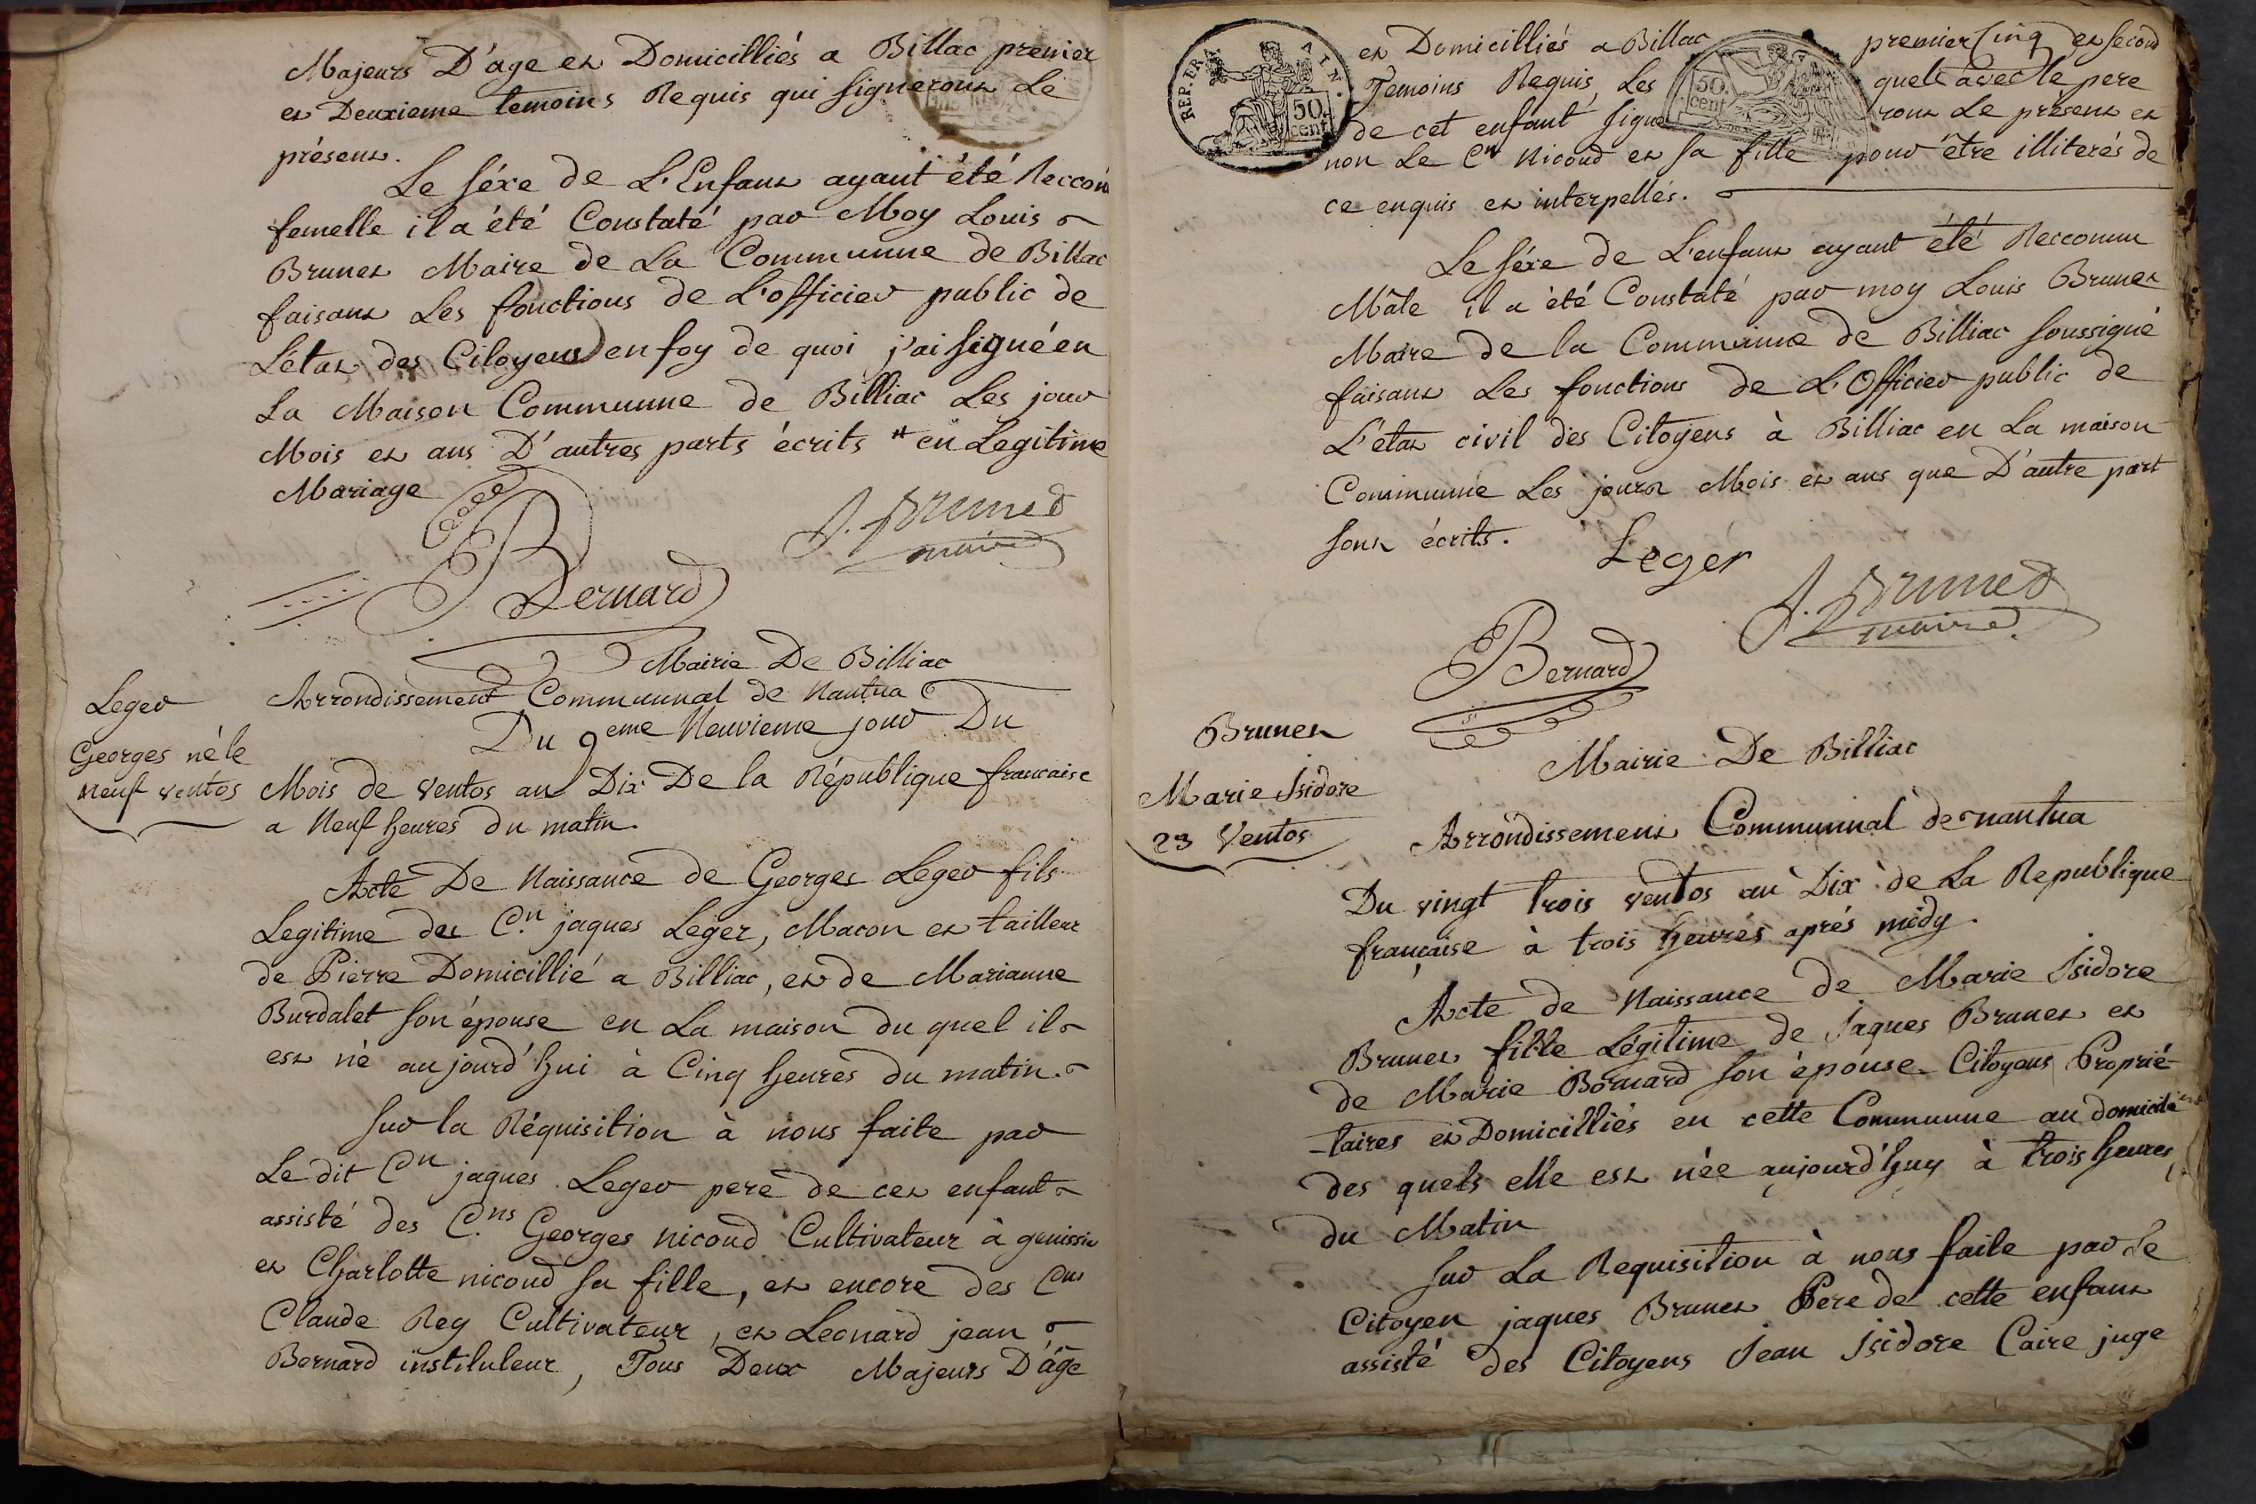 Majeurs D'age et Domicilliés a Billac premier
et Deuxieme temoins Requis qui signeront Le
présent.
Le séxe de L'Enfant ayant été Reccon
femelle il a été Constaté par Moy Louis
Brunet Maire de La Communne de Billac
faisant Les fonctions de L'officier public de
L'état des Citoyens en foy de quoi j'ai signé en
La Maison Communne de Billiac Les jour
Mois et ans D'autres parts écrits # en Legitime
Mariage
Bernard
J. Brunet
maire
Mairie De Billiac
Arrondissement Communnal de Nantua
Leger
Georges né le
neuf ventos
Du 9eme Neuvieme jour Du
Mois de ventos an Dix De la République francaise
a Neuf heures du matin.
Acte De Naissance de Georges Leger fils
Legitime des C.n jaques Leger, Macon et tailleur
de Pierre Domicillié a Billiac, et de Marianne
Burdalet son épouse en La maison du quel il
est né aujourd'hui à Cinq heures du matin.
Sur la Réquisition à nous faite par
Le dit Cn jaques Leger pere de cet enfant
assisté des C.ns Georges nicoud Cultivateur à genissia
et Charlotte nicoud sa fille, et encore des Cns
Claude Rey Cultivateur, et Leonard jean
Bernard instituteur, Tous Deux Majeurs D'âge
REP. FRA.
AIN.
50. cent
50. cent
et Domicilliés a Billac premier Cinq et second
Temoins Requis, Les quels avec le pere
de cet enfant signeront Le présent et
non Le Cn Nicoud et sa fille pour être illiterés de
ce enquis et interpellés.
Le séxe de L'enfant ayant été Reccomm
Mâle il a été Constaté par moy Louis Brunet
Maire de la Communne de Billiac soussigné
faisant Les fonctions de L'Officier public de
L'état civil des Citoyens à Billiac en La maison
Communne Les jours Mois et ans que D'autre part
sont écrits.
Leger
J. Brunet
maire
Bernard
Brunet
Marie Isidore
23 Ventos
Mairie De Billiac
Arrondissement Communnal de nantua
Du vingt trois ventos an Dix de La Republique
française à trois heures aprés midy.
Acte de Naissance de Marie Isidore
Brunet fille Légitime de Jaques Brunet et
de Marie Bornard son épouse Citoyens Proprié-
-taires et Domicilliés en cette Communne au domicile
des quels elle est née aujourd'huy à trois heures
du Matin
Sur La Requisition à nous faite par Le
Citoyen jaques Brunet Pere de cette enfant
assisté des Citoyens Jean Isidore Caire juge